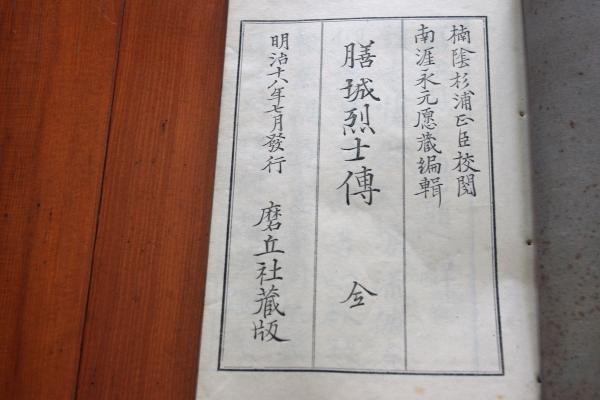 楠陰杉浦正臣校閲
南涯永元愿蔵編輯
膳城烈士傳 全
明治十八年七月發行 磨丘社蔵版